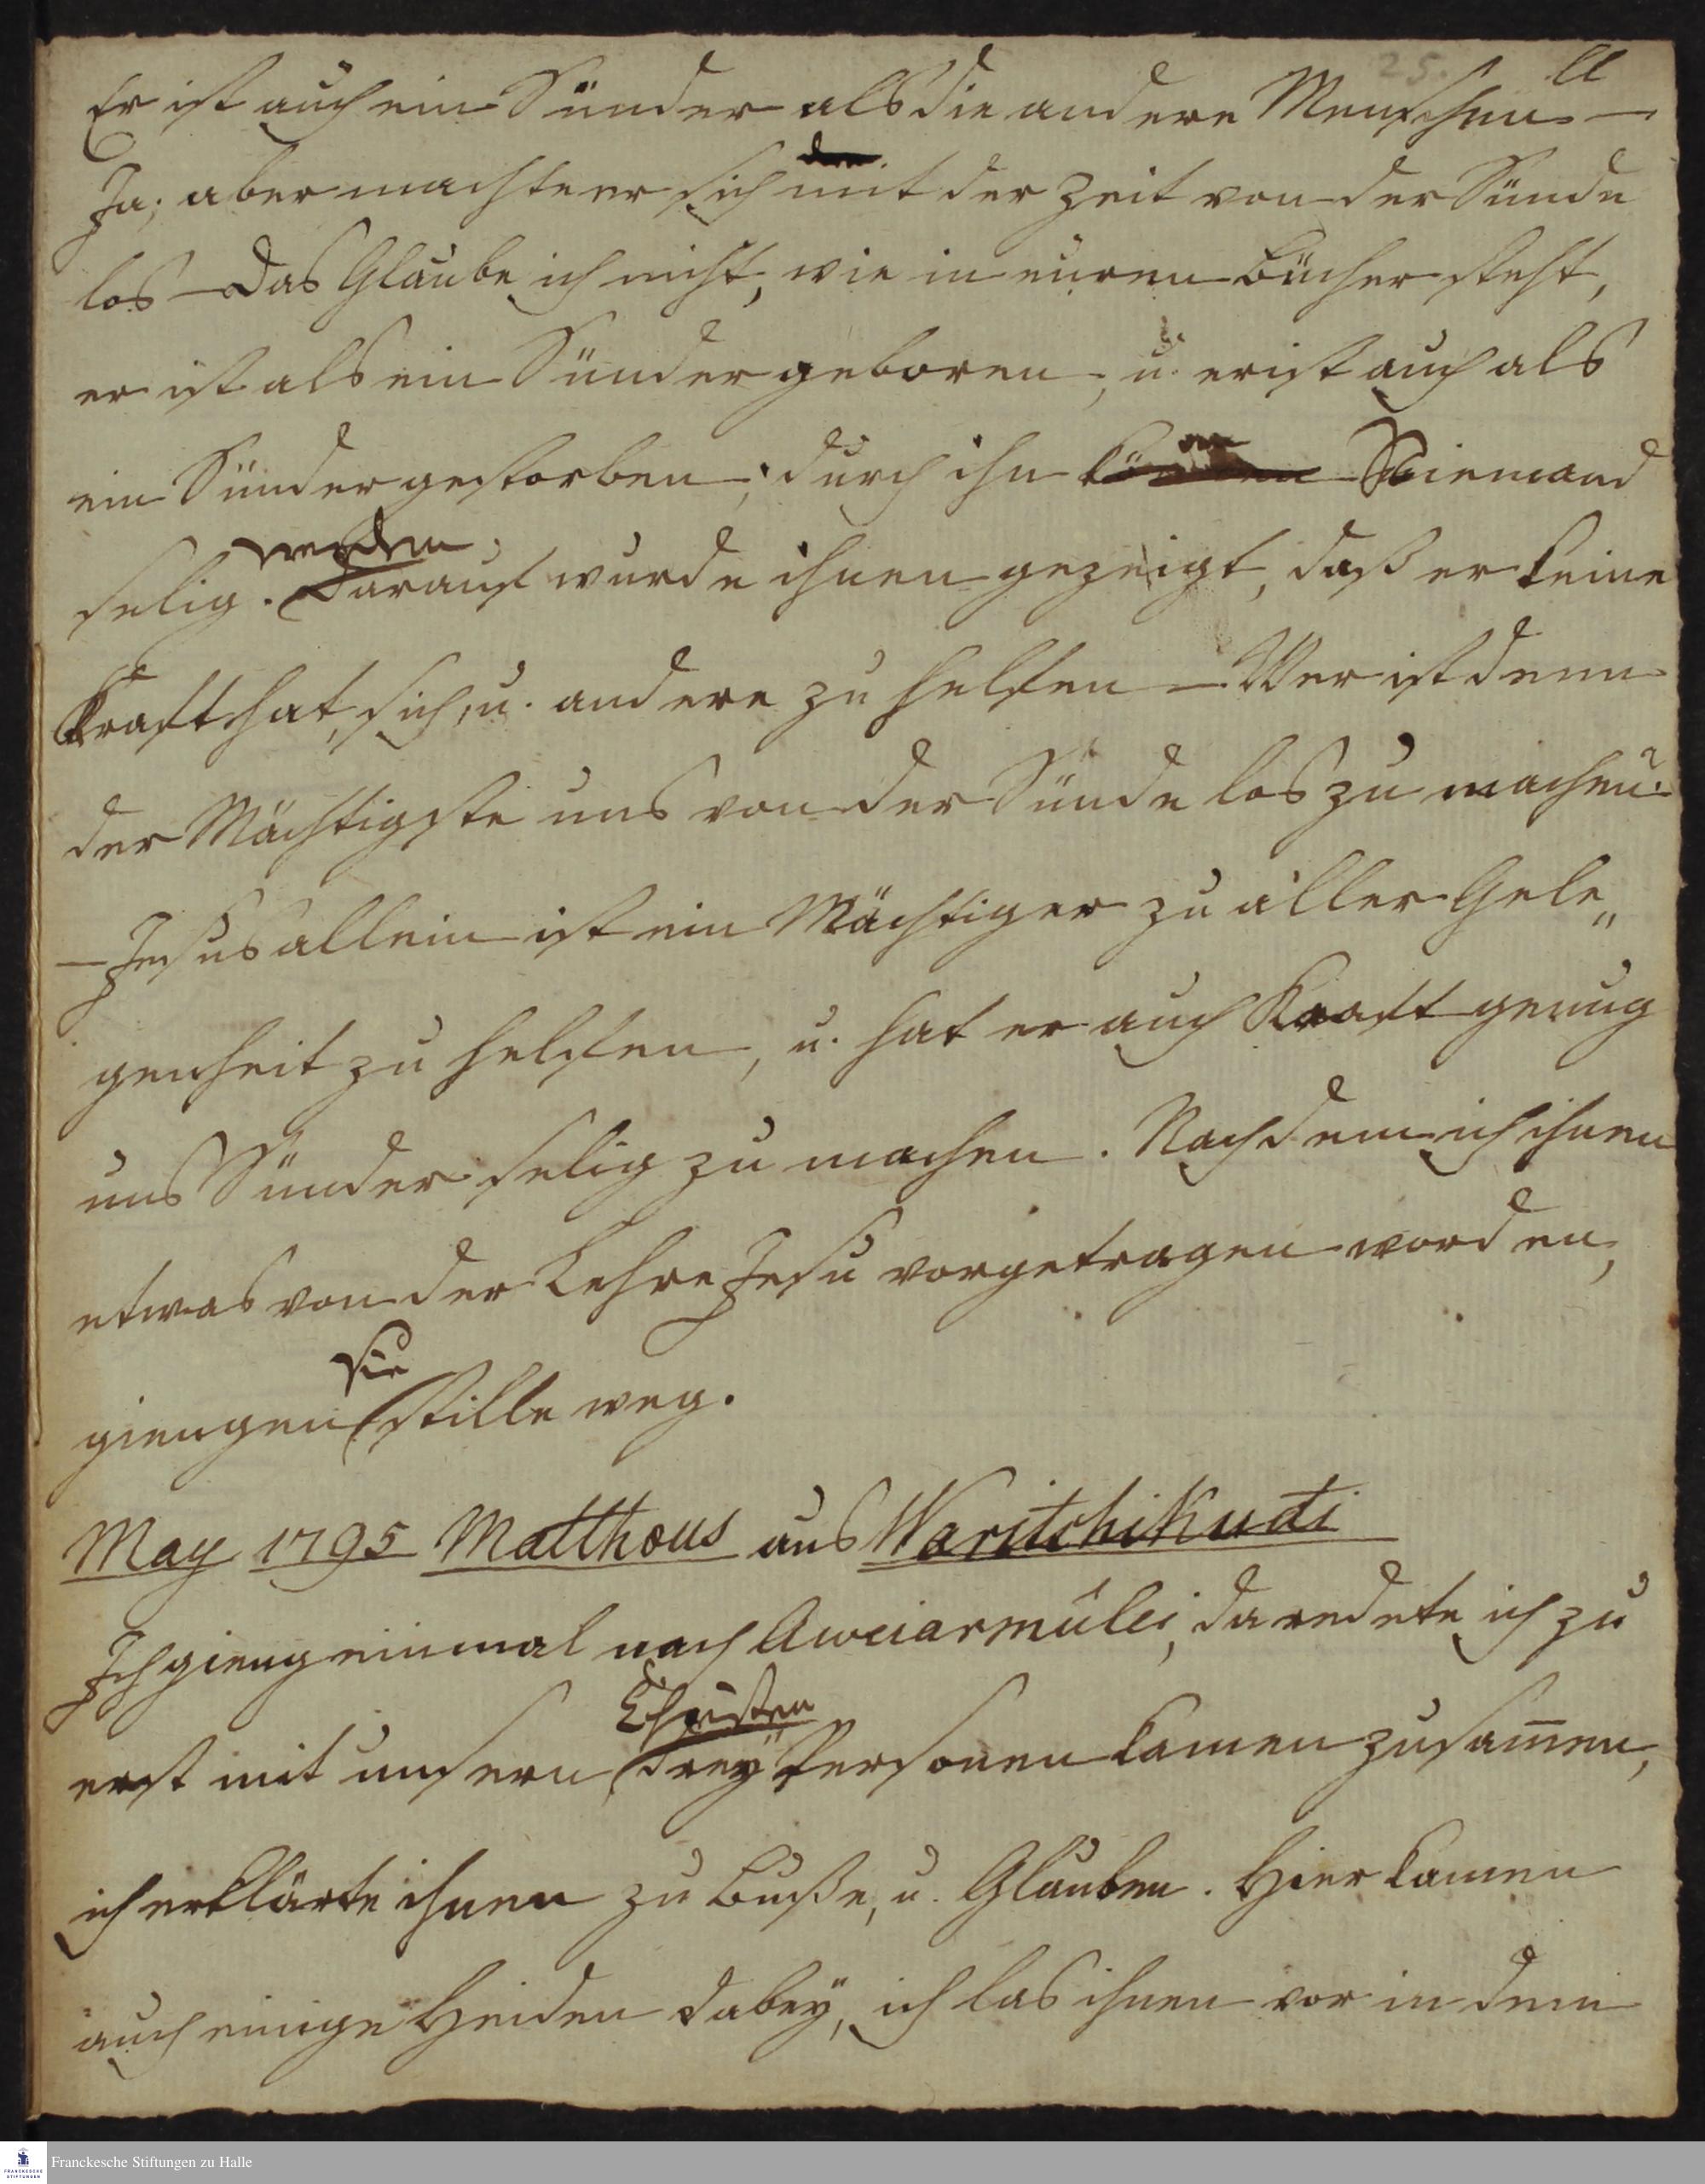 25. ll
Er ist auch ein Sünder als die andere Menschen –
Ja; aber machte er sich mit der Zeit von der Sünde
los – Das Glaube ich nicht, wie in euren Bücher steht,
er ist als ein Sünder geboren, u. er ist auch als
ein Sünder gestorben; durch ihn Niemand
werden
selig. Darauf wurde ihnen gezeigt, daß er keine
Kraft hat, sich, u. andere zu helfen – Wer ist denn
der Mächtigste uns von der Sünde los zu machen?
– Jesus allein ist ein Mächtiger zu aller Gele„
genheit zu helfen, u. hat er auch Kraft genug
uns Sünder selig zu machen. Nachdem ich ihnen
etwas von der Lehre Jesu vorgetragen worden,
sie
giengen stille weg.
May 1795 Matthœus aus Waritschikudi
Ich gieng einmal nach Aweiarmülei, da redete ich zu
Christen
erst mit unsern drey Personen kamen zusam̄en,
ich erklärte ihnen zu Buße, u. Glauben. Hier kamen
auch einige Heiden dabey, ich las ihnen vor in dem
Franckesche Stiftungen zu Halle
FRANCKESCHE
STIFTUNGEN